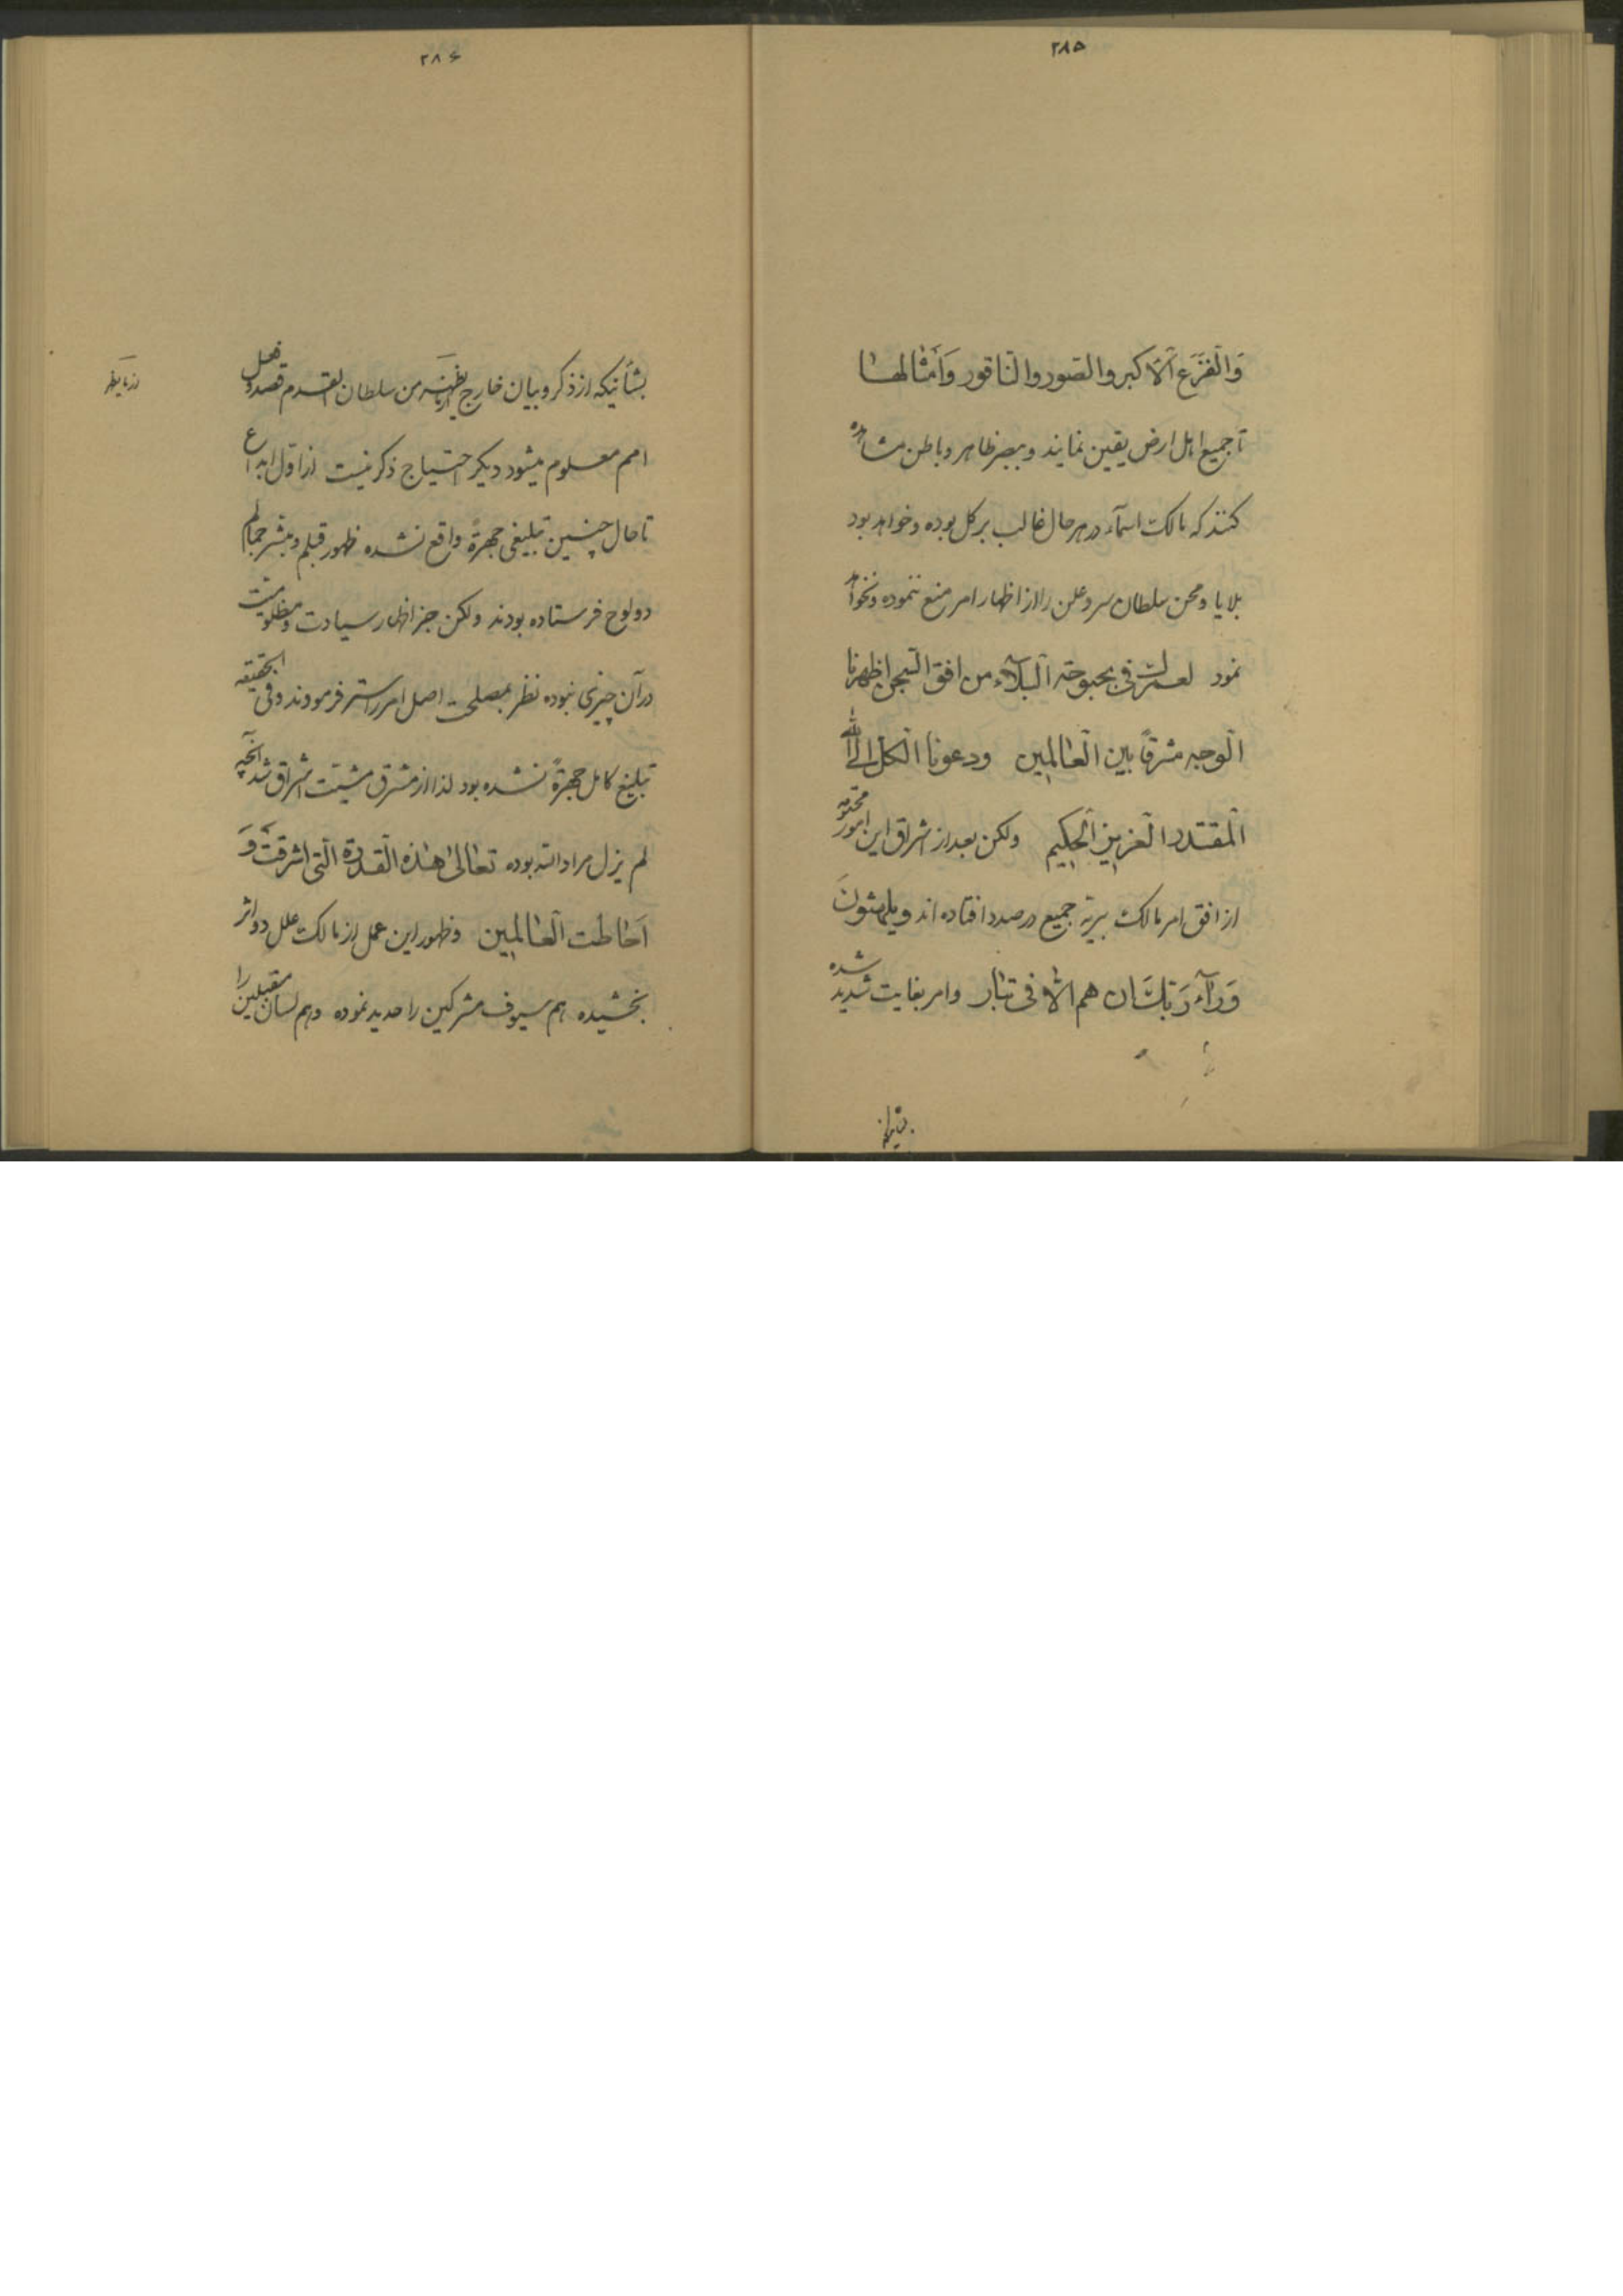 ۲۸۵
وَالْفَزَعِ الْأَكبر والصّور والنّاقور وَأَمْثالها
تا جمیع اهل ارض یقین نمایند و ببصر ظاهر و باطن مشاهده
کنند که مالک اسمآء در هر حال غالب بر کل بوده و خواهد بود
بلایا و محن سلطان سر و علن را از اظهار امر منع ننموده و نخواهد
نمود لعمرالله فی بحبوحة البلآء من افق السّجن اظهرنا
الوجه مشرقاً بین العالمین ودعونا الکلّ الی الله
المقتدر العزیز الحکیم ولکن بعد از اشراق این امور محتومه
از افق امر مالک بریّه جمیع در صدد افتاده اند و یلهثونَ
وَرآءَ رَبّک شان هم الّا فی تبار وامر بغایت شدید شده
۲۸۶
بشأنیکه از ذکر و بیان خارج من سلطان القدم قصد و فعل
امم معلوم میشود دیگر احتیاج ذکر نیست از اوّل ابداع
تا حال چنین تبلیغی جهرةً واقع نشده ظهور قبلم و مبشّر جمالم
دو لوح فرستاده بودند ولکن جز اظهار سیادت و مظلومیّت
در آن چیزی نبوده نظر بمصلحت اصل امر را ستر فرمودند و فی الحقیقه
تبلیغ کامل جهرةً نشده بود لذا از مشرق مشیّت اشراق شد آنچه
لم یزل مراد الله بوده تعالی هذه القدرة الّتی اشرقت وَ
اَحاطت العالمین و ظهور این عمل از مالک علل دو اثر
بخشیده هم سیوف مشرکین را حدید نموده و هم لسان مقبلین را